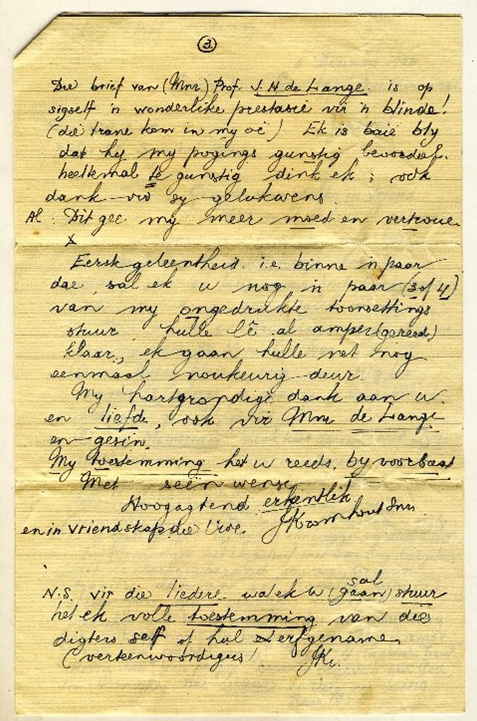 3.
Die brief van (Mnr) Prof. J. H. de Lange. is op
sigself 'n wonderlike prestasie vir 'n blinde!
(die trane kom in my oë) Ek is baie bly
dat hy my pogings gunstig beoordeel.
heeltemal te gunstig dink ek; ook
dank vir sy gelukwens.
Al: Dit gee my meer moed en vertroue
x
Eerste geleentheid. i.e. binne 'n paar
dae, sal ek u nog 'n paar (3 of 4)
van my ongedrukte toonsettings
stuur hulle lê al amper (gereed)
klaar, ek gaan hulle net nog
eenmaal noukeurig deur.
My hartgrondige dank aan u.
en liefde, ook vir Mnr de Lange
en gesin.
My toestemming het u reeds, by voorbaat
Met seën wense
Hoogagtend erkentlik
en in vriendskap die Uwe. JKromhout Snr.
N.S. vir die liedere wat ek u (gaan) sal stuur
het ek volle toestemming van die
digters self of hul erfgename
(verteenwoordigers) JKr.